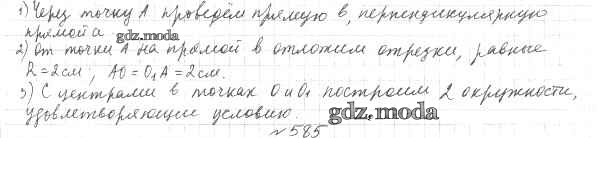 1) Через точку А проведём прямую в, перпендикулярную
прямой а gdz.moda
2) От точки А на прямой в отложим отрезки, равные
R = 2 см; АО = О₁А = 2 см.
3) С центрами в точках О и О₁ построим 2 окружности,
удовлетворяющие условию. gdz.moda
№585